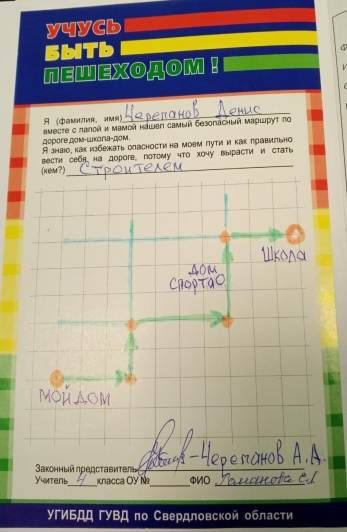 УЧУСЬ
БЫТЬ
ПЕШЕХОДОМ!
Я (фамилия, имя) Черепанов Денис
вместе с папой и мамой нашел самый безопасный маршрут по
дороге дом-школа-дом.
Я знаю, как избежать опасности на моем пути и как правильно
вести себя, на дороге, потому что хочу вырасти и стать
(кем?) Строителем
ШКОЛА
ДОМ
СПОРТА
МОЙ ДОМ
Законный представитель - Черепанов А.Д.
Учитель 4 класса ОУ № ФИО Романова
УГИБДД ГУВД по Свердловской области